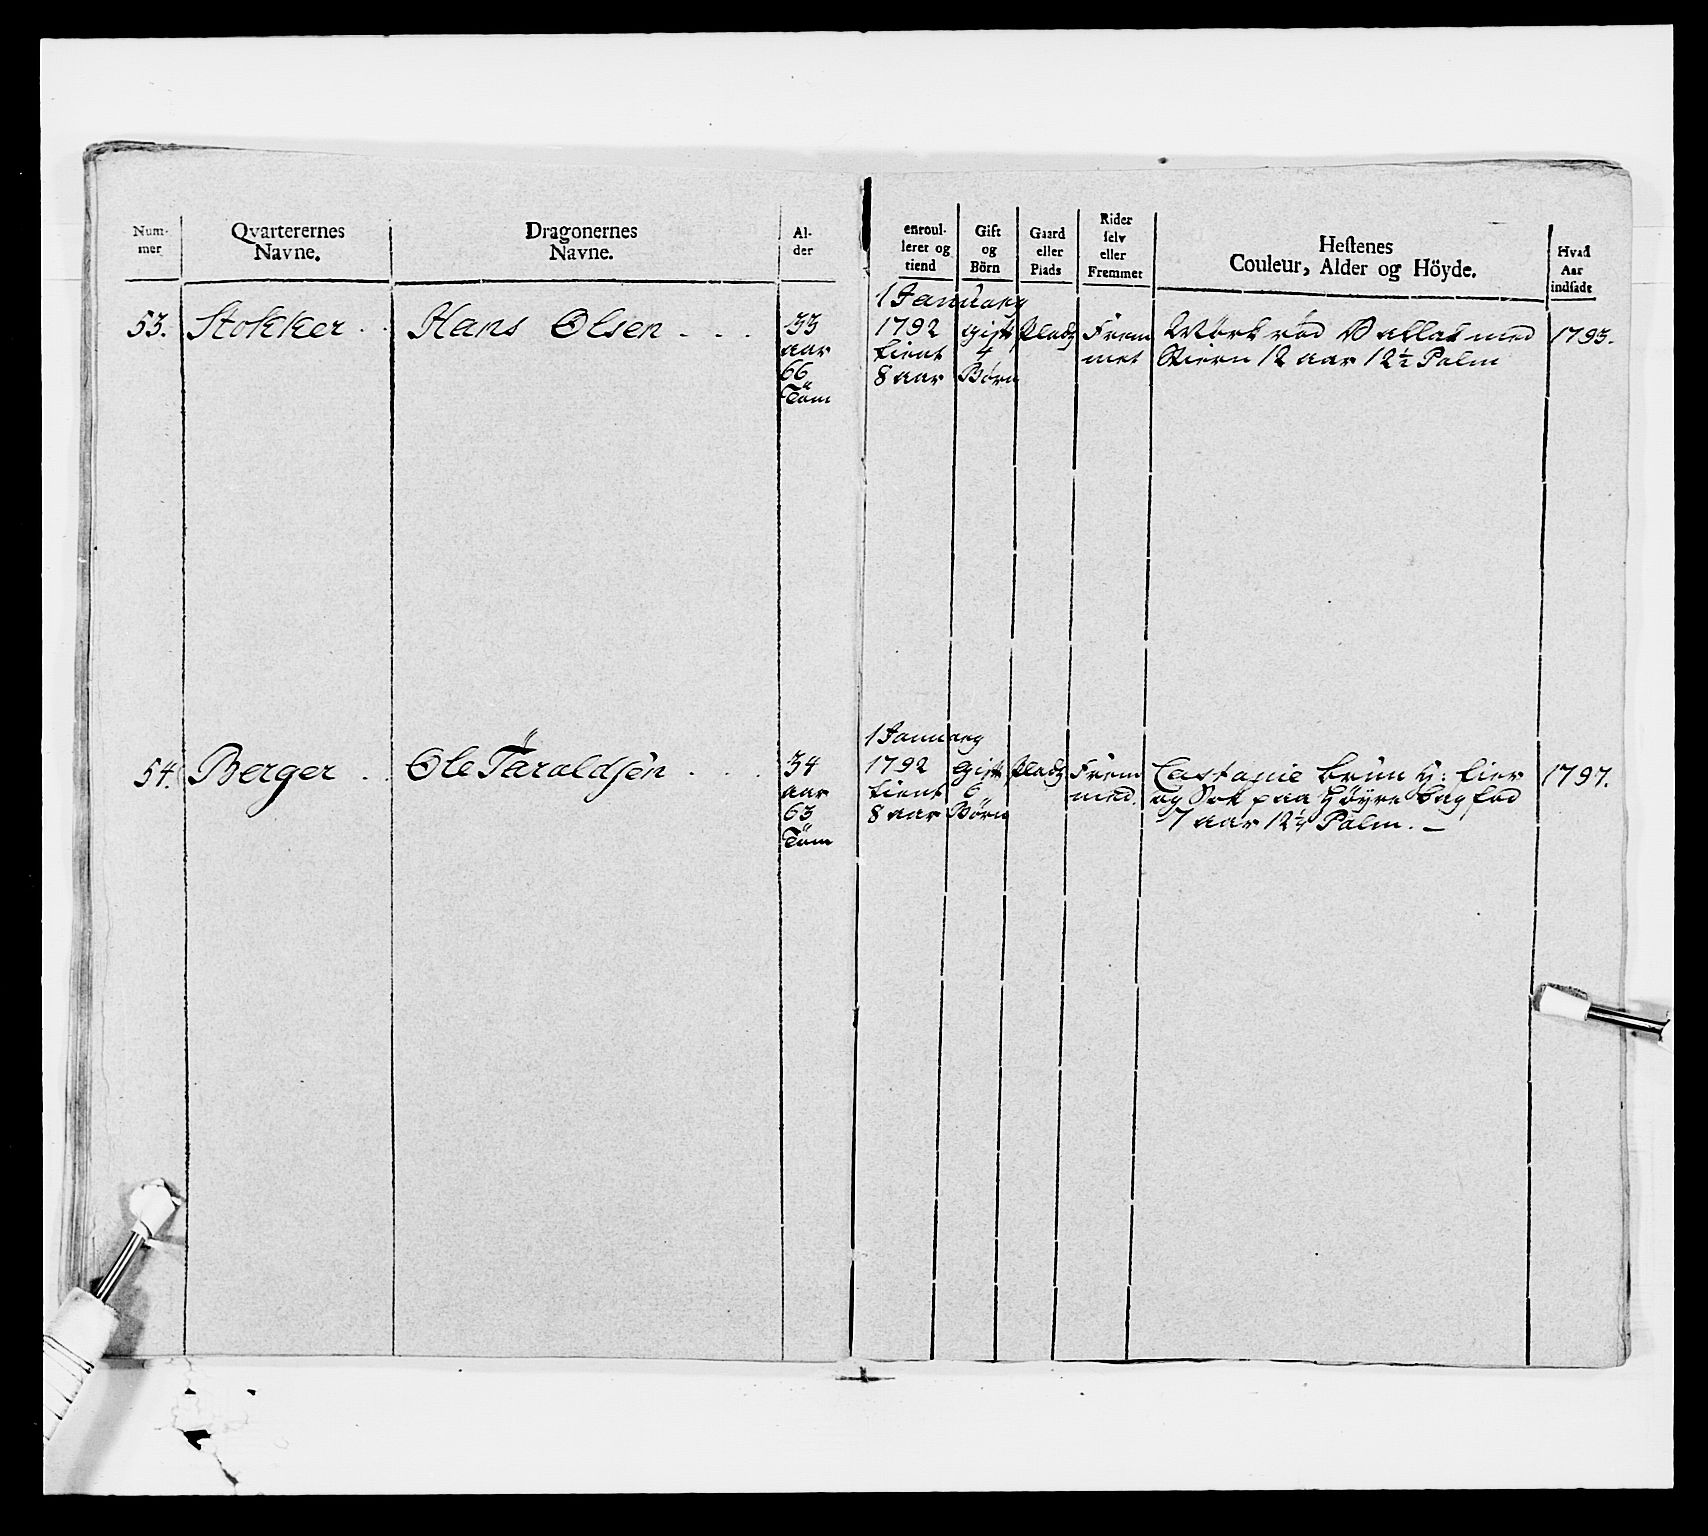 Num-
mer
Qvarterernes
Navne.
Dragonernes
Navne.
Al-
der
enroul-
leret og
tiend
Gift
og
Börn
Gaard
eller
Plads
Rider
selv
eller
Fremmet
Hestenes
Couleur, Alder og Höyde.
Hvad
Aar
indsadt
53.
Stokker
Hans Olsen
33
aar
66
Tom
1 January
1792
tient
8 aar
Gift
4
Børn
Pladz
Frem
met
Mörk röd Vallak med
Stiern 12 aar 12½ Palm
1793.
54.
Berger
Ole Taraldsen
34
aar
63
Tom
1 January
1792
tient
8 aar
Gift
6
Børn
Pladz
Frem
med.
Castanie brun H:
og Sok paa Höyre bagfod
7 aar 12¼ Palm. –
1797.